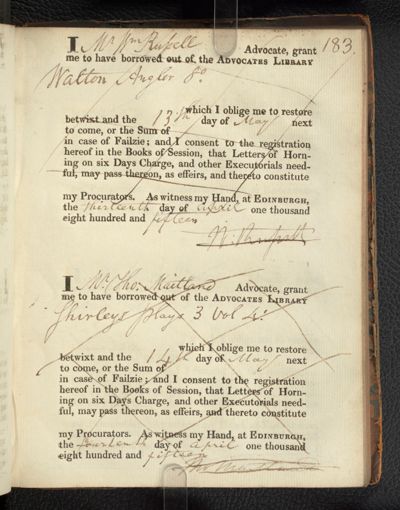 183.
I Mr Wm Russell Advocate, grant
me to have borrowed out of the ADVOCATES LIBRARY
Walton Angler 8o
which I oblige me to restore
betwixt and the 13th day of May next
to come, or the Sum of
in case of Failzie; and I consent to the registration
hereof in the Books of Session, that Letters of Horn-
ing on six Days Charge, and other Executorials need-
ful, may pass thereon, as effeirs, and thereto constitute
my Procurators. As witness my Hand, at EDINBURGH,
the thirteenth day of April one thousand
eight hundred and fifteen
W. Russell
I Mr Tho: Maitland Advocate, grant
me to have borrowed out of the ADVOCATES LIBRARY
Shirleys plays 3 Vol 4o:
which I oblige me to restore
betwixt and the 14th day of May next
to come, or the Sum of
in case of Failzie; and I consent to the registration
hereof in the Books of Session, that Letters of Horn-
ing on six Days Charge, and other Executorials need-
ful, may pass thereon, as effeirs, and thereto constitute
my Procurators. As witness my Hand, at EDINBURGH,
the fourteenth day of April one thousand
eight hundred and fifteen